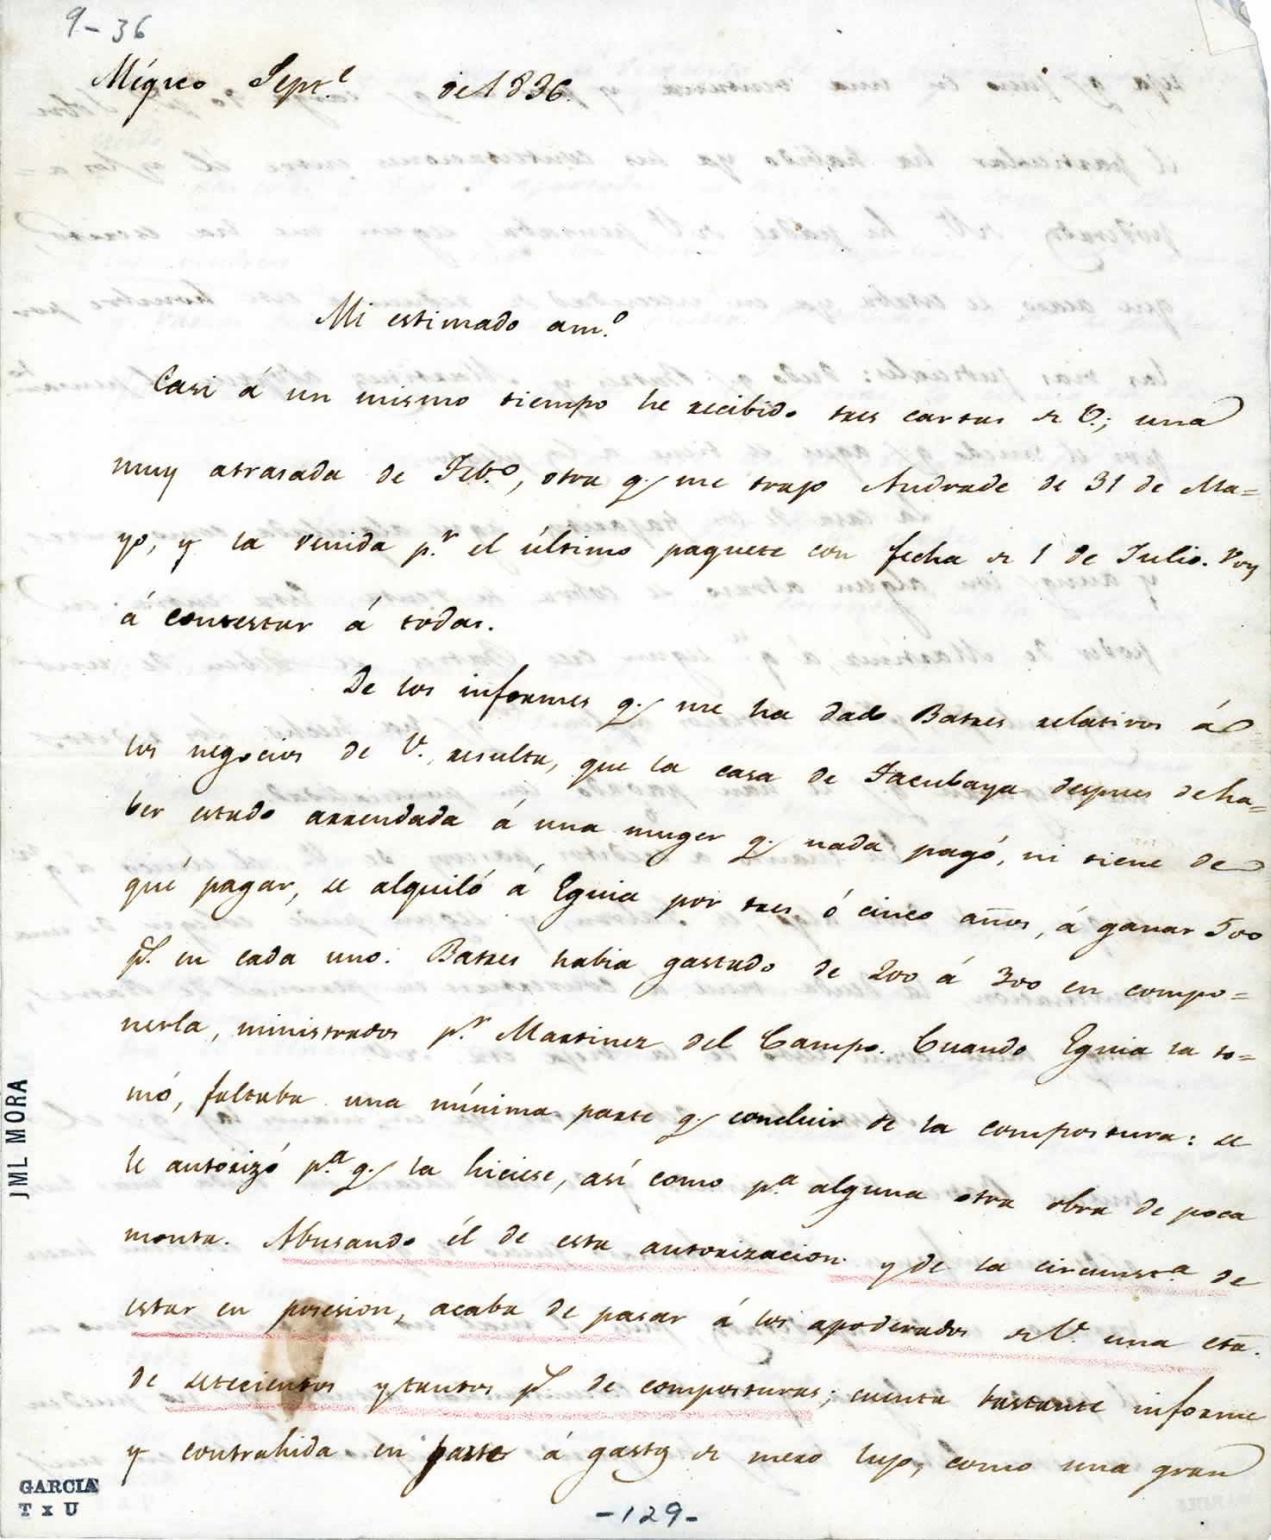 9-36
Mégico Sept.e de 1836.
Mi estimado am.o
Casi á un mismo tiempo he recibido tres cartas de V.; una
muy atrasada de Feb.o, otra q. me trajo Andrade de 31 de Ma=
yo, y la venida p.r el último paquete con fecha de 1 de Julio. Voy
á contestar á todas.
De los informes q. me ha dado Batres relativos á
los negocios de V. resulta, que la casa de Tacubaya despues de ha=
ber estado arrendada á una muger q. nada pagó, ni tiene de
qué pagar, se alquiló á Eguia por tres ó cinco años, á ganar 500
p.s en cada uno. Batres habia gastado de 200 á 300 en compo=
nerla, ministrados p.r Martinez del Campo. Cuando Eguia la to=
mó, faltaba una mínima parte q. concluir de la compostura: se
le autorizó p.a q. la hiciese, así como p.a alguna otra obra de poca
monta. Abusando él de esta autorizacion y de la circunst.a de
estar en posesion, acaba de pasar á los apoderados de V. una cta.
de setecientos y tantos p.s de composturas; cuenta bastante informe
y contrahida en parte á gastos de mero lujo, como una gran
JML MORA
GARCIA
T x U
-129-